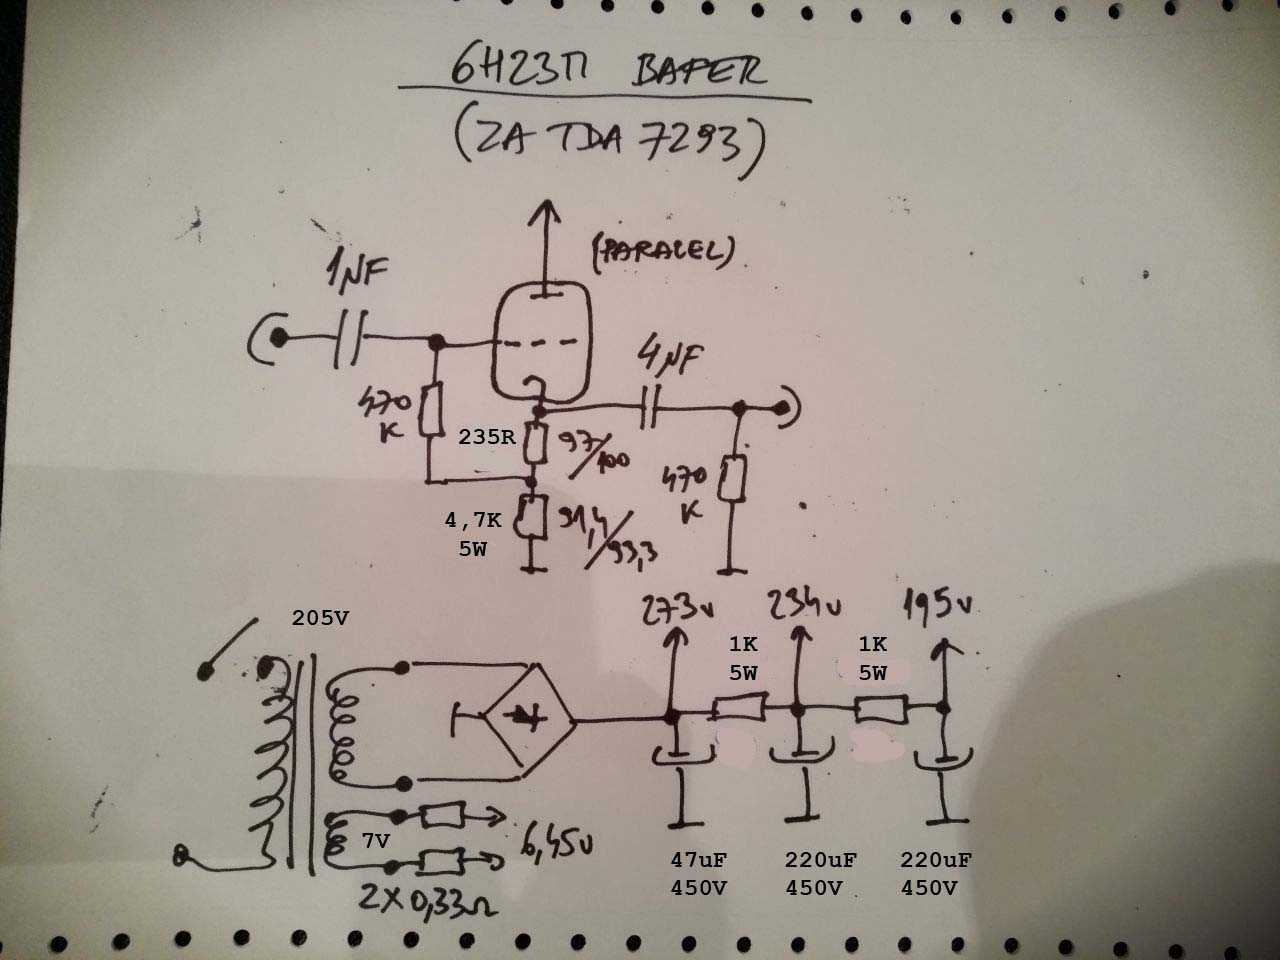 6Н23П BAFER
(ZA TDA 7293)
(PARALEL)
1µF
4µF
470
K
235R
97/100
470
K
4,7K
5W
91,4/93,3
205V
273v
234v
195v
1K
5W
1K
5W
7V
6,45v
2X0,33Ω
47uF
450V
220uF
450V
220uF
450V